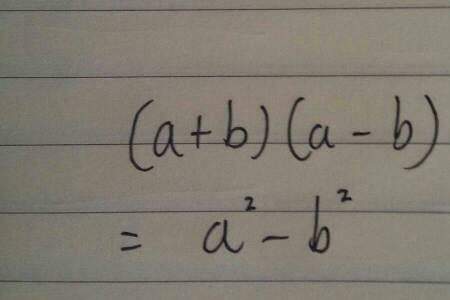 (a+b)(a-b)
= a²-b²